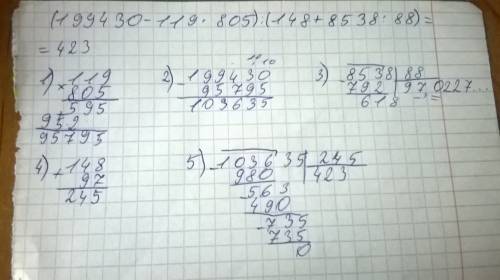 (199430-119·805):(148+8538:88)=
=423
1) ×119
805
595
952
95795
2) -199430
95795
103635
3) 8538|88
792 97,0227...
618
4) +148
97
245
5) -103635|245
980 423
-563
490
-735
735
0